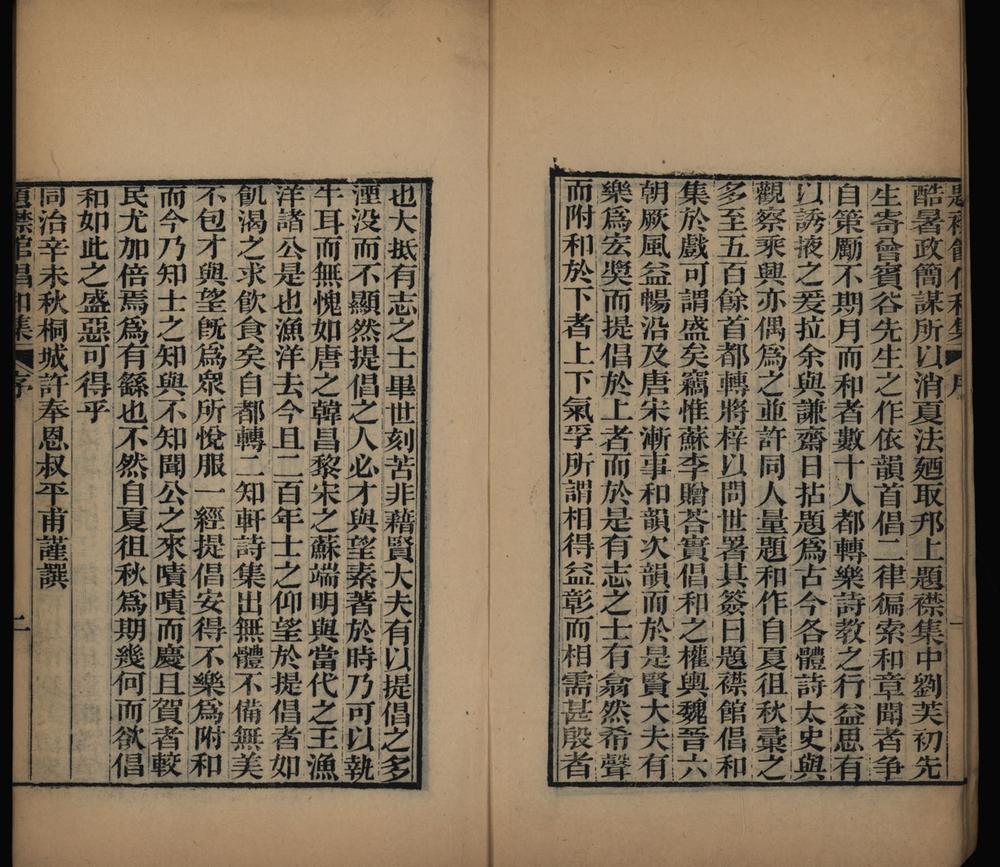 題襟館倡和集 序 一
酷暑政簡謀所以消夏法廼取邗上題襟集中劉芙初先
生寄曾賓谷先生之作依韻首倡二律徧索和章聞者争
自策勵不期月而和者數十人都轉樂詩教之行益思有
以誘掖之爰拉余與謙齋日拈題爲古今各體詩太史與
觀察乘興亦偶爲之並許同人量題和作自夏徂秋彚之
多至五百餘首都轉將梓以問世署其簽曰題襟館倡和
集於戲可謂盛矣竊惟蘇李贈荅實倡和之權輿魏晉六
朝厥風益暢沿及唐宋漸事和韻次韻而於是賢大夫有
樂爲宏奬而提倡於上者而於是有志之士有翕然希聲
而附和於下者上下氣孚所謂相得益彰而相需甚殷者
也大抵有志之士畢世刻苦非藉賢大夫有以提倡之多
湮没而不顯然提倡之人必才與望素著於時乃可以執
牛耳而無愧如唐之韓昌黎宋之蘇端明與當代之王漁
洋諸公是也漁洋去今且二百年士之仰望於提倡者如
飢渴之求飲食矣自都轉二知軒詩集出無體不備無美
不包才與望旣爲衆所悅服一經提倡安得不樂爲附和
而今乃知士之知與不知聞公之來嘖嘖而慶且賀者較
民尤加倍焉爲有繇也不然自夏徂秋爲期幾何而欲倡
和如此之盛惡可得乎
同治辛未秋桐城許奉恩叔平甫謹譔
題襟館倡和集 序 二